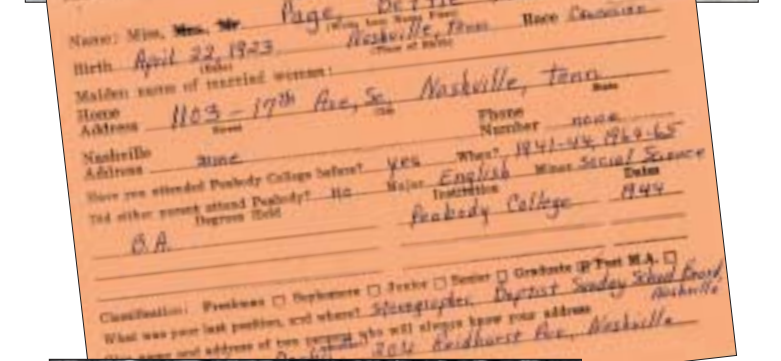 Name: Miss, Mrs. Mr. Page Bettie
(Write Last Name First)
Birth April 22, 1923 Nashville, Tenn Race Caucasian
(Date) (Place of Birth)
Maiden name of married woman:
Home
Address 1103 - 17th Ave, So, Nashville, Tenn
Street City State
Nashville
Address same Phone
Number none
Have you attended Peabody College before? yes When? 1941-44, 1964-65
Did either parent attend Peabody? no Major English Minor Social Science
Degrees Held Institution Dates
B.A. Peabody College 1944
Classification: Freshman □ Sophomore □ Junior □ Senior □ Graduate Post M.A. □
What was your last position, and where? Stenographer, Baptist Sunday School Board, Nashville
name and address of who will always know your address
Ave, Nashville